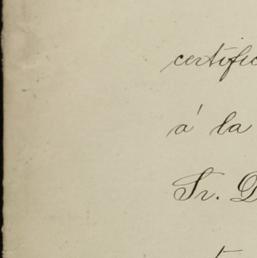 certific
á la
Sr. D